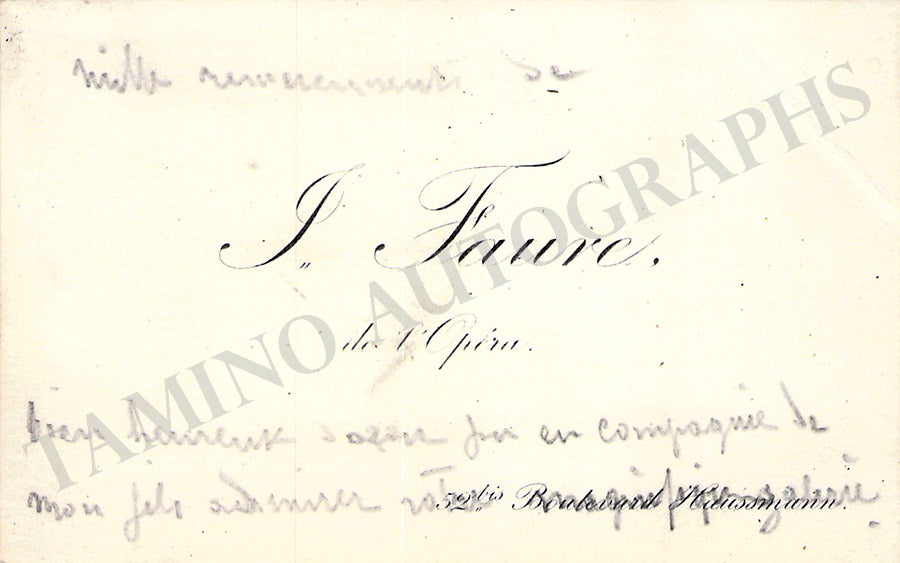 mille remerciements de
J. Faure.
de l'Opéra.
bien heureux d'avoir pu en compagnie de
mon fils admirer votre magnifique galerie
52 bis Boulevard Haussmann.
TAMINO AUTOGRAPHS